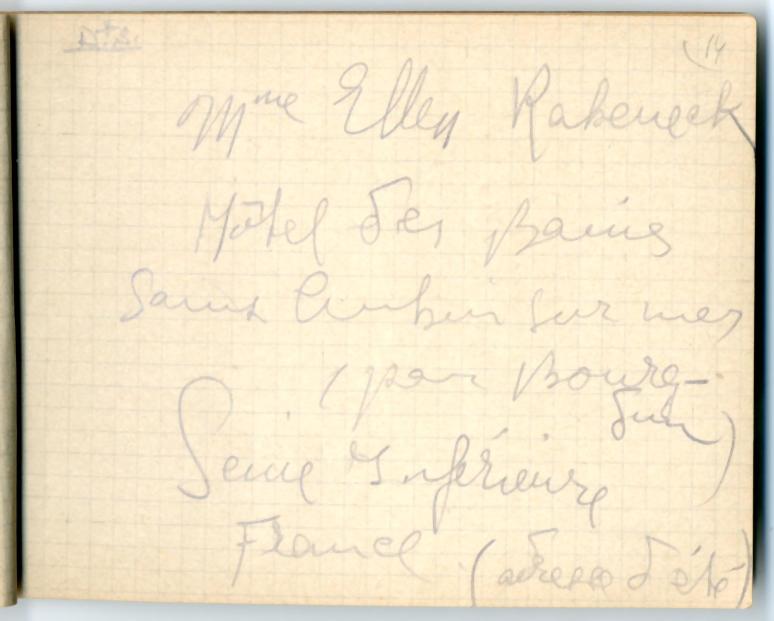 14
Mme Ellen Rabeneck
Hôtel des Bains
Saint Aubin sur mer
(par Bourg-
dun)
Seine Inférieure
France (adresse d'été)